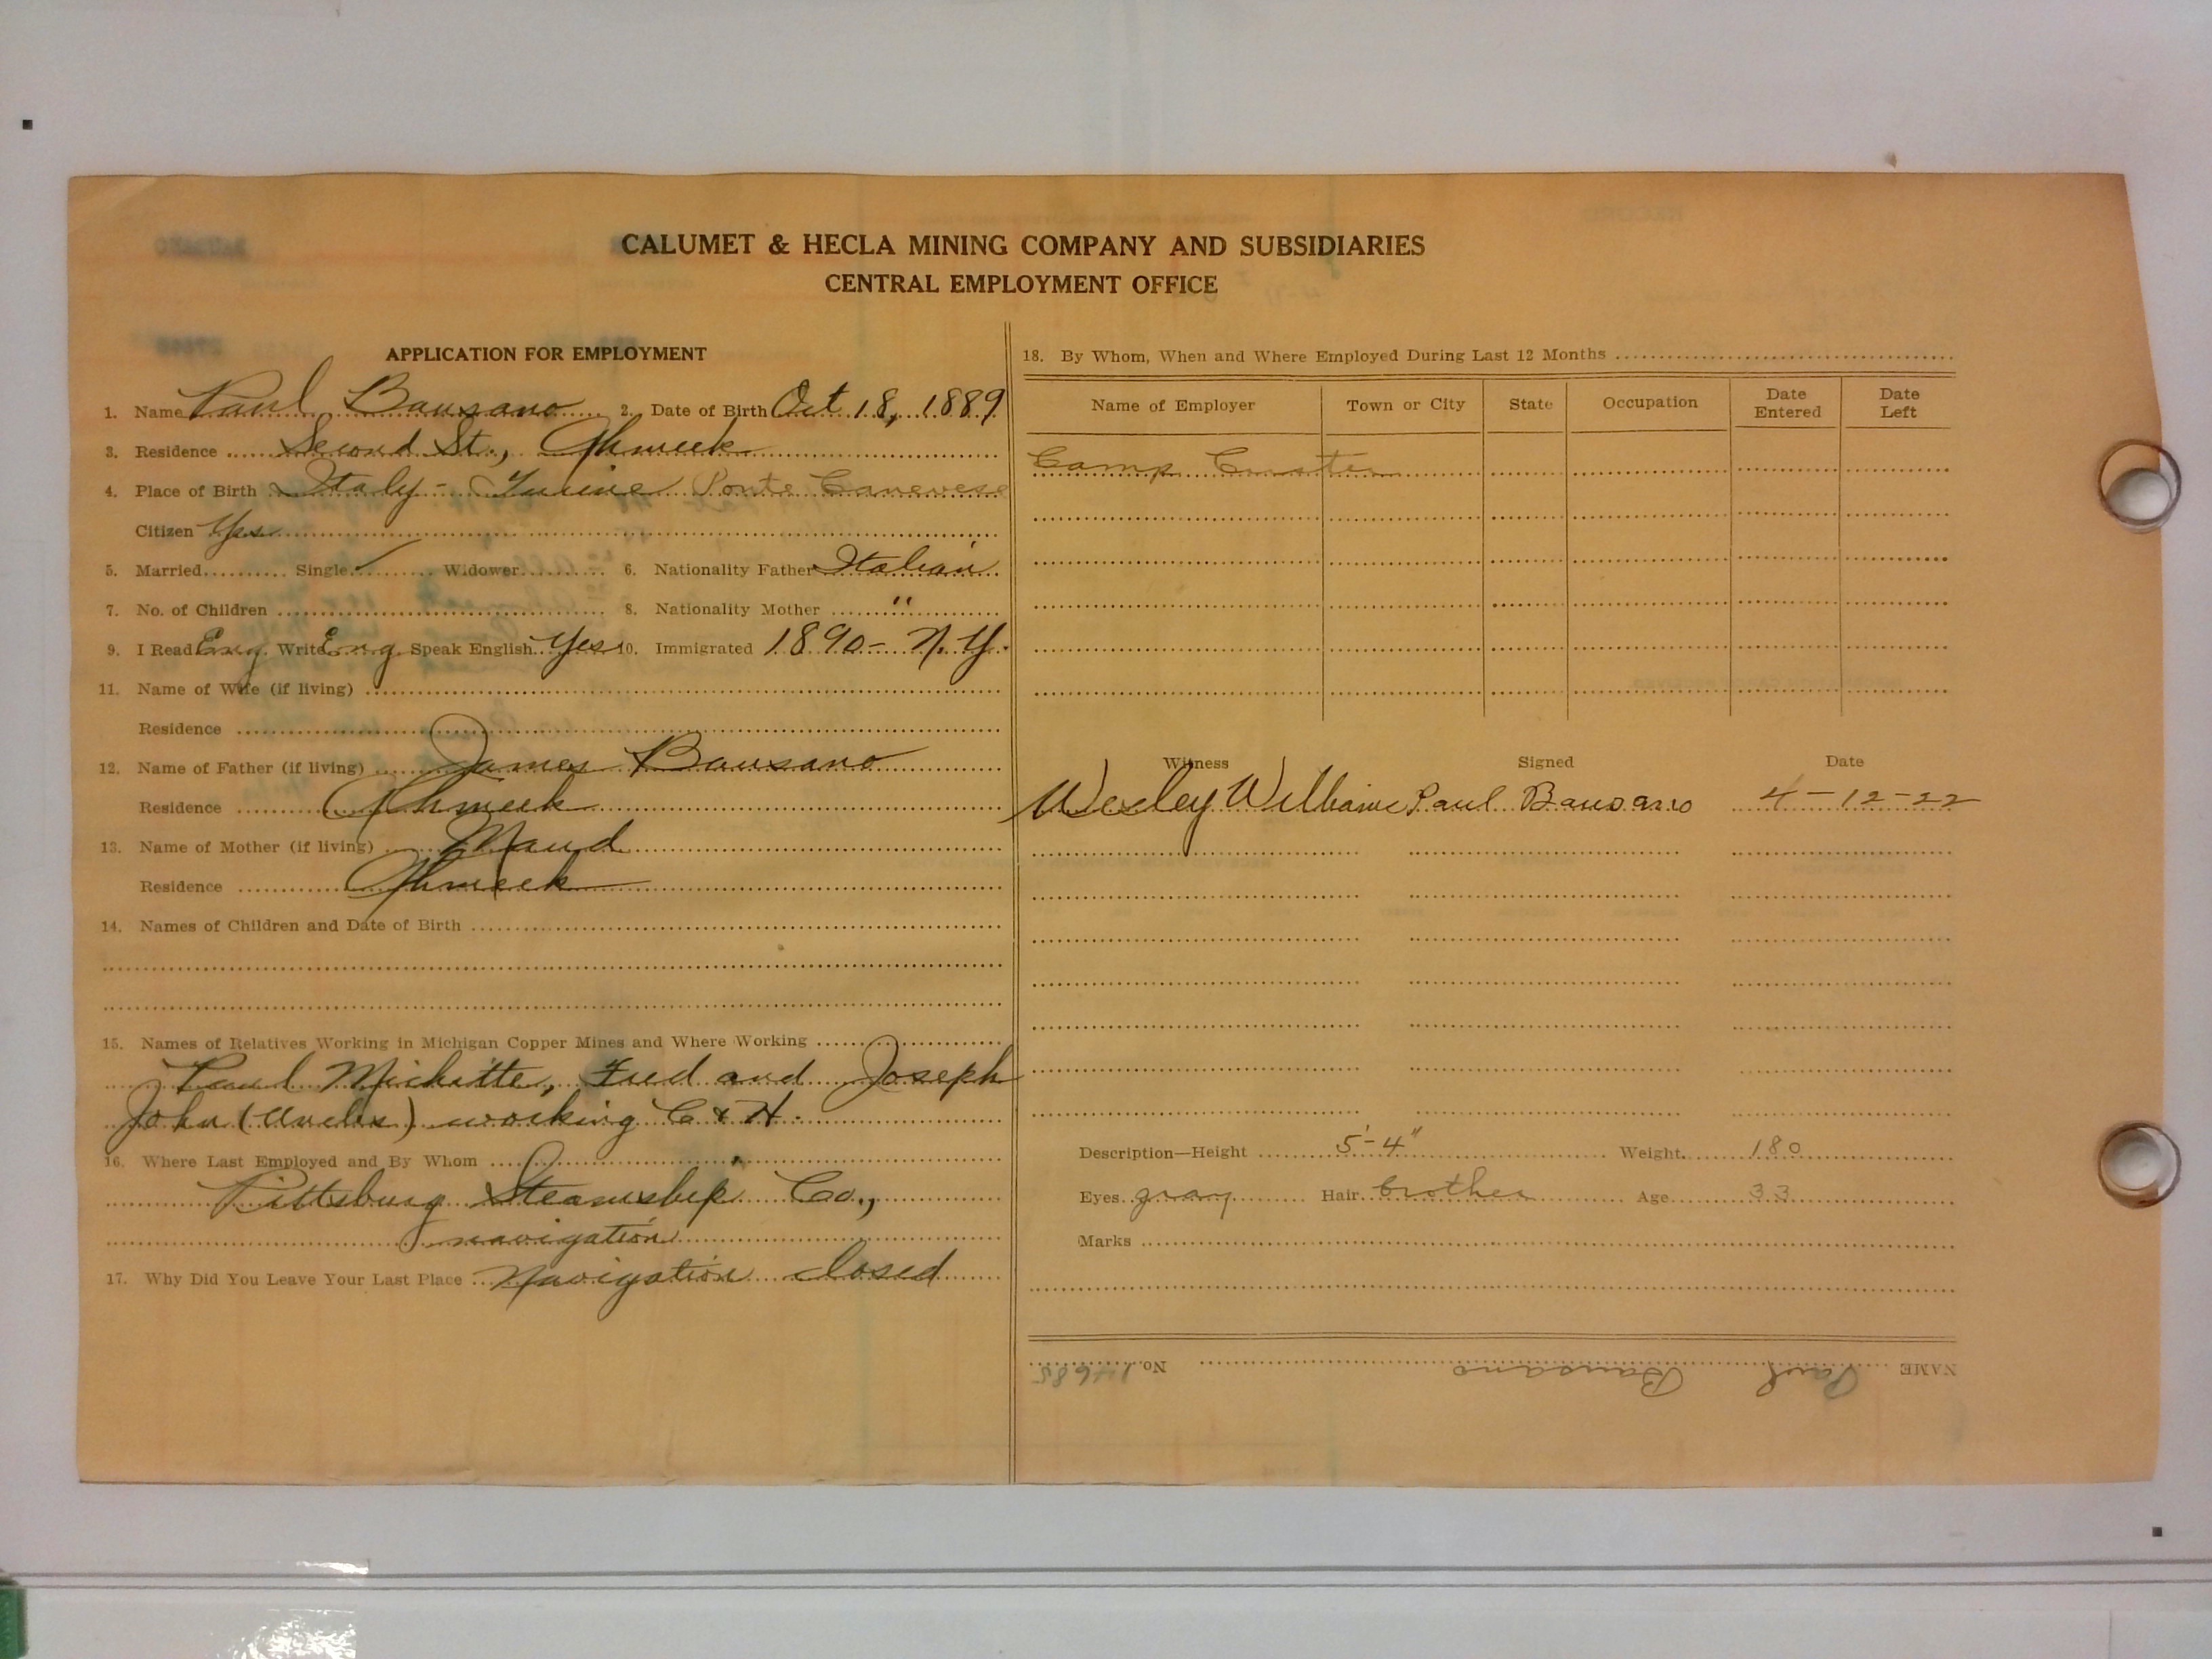 CALUMET & HECLA MINING COMPANY AND SUBSIDIARIES
CENTRAL EMPLOYMENT OFFICE
APPLICATION FOR EMPLOYMENT
1. Name Paul Bausano 2. Date of Birth Oct 18, 1889
3. Residence Second St., Ahmeek
4. Place of Birth Italy - Turine Ponte Canevese
Citizen Yes
5. Married Single ✓ Widower 6. Nationality Father Italian
7. No. of Children 8. Nationality Mother "
9. I Read Eng. Write Eng. Speak English Yes 10. Immigrated 1890 - N.Y.
11. Name of Wife (if living)
Residence
12. Name of Father (if living) James Bausano
Residence Ahmeek
13. Name of Mother (if living) Maud
Residence Ahmeek
14. Names of Children and Date of Birth
15. Names of Relatives Working in Michigan Copper Mines and Where Working
Paul Michette, Fred and Joseph
John (Uncles) working C & H.
16. Where Last Employed and By Whom
Pittsburg Steamship Co.,
navigation
17. Why Did You Leave Your Last Place Navigation closed
18. By Whom, When and Where Employed During Last 12 Months
Name of Employer Town or City State Occupation Date Entered Date Left
Camp Custer
Witness Signed Date
Wesley Williams Paul Bausano 4-12-22
Description—Height 5'-4" Weight 180
Eyes gray Hair brother Age 33
Marks
NAME Paul Bausano No. 14685